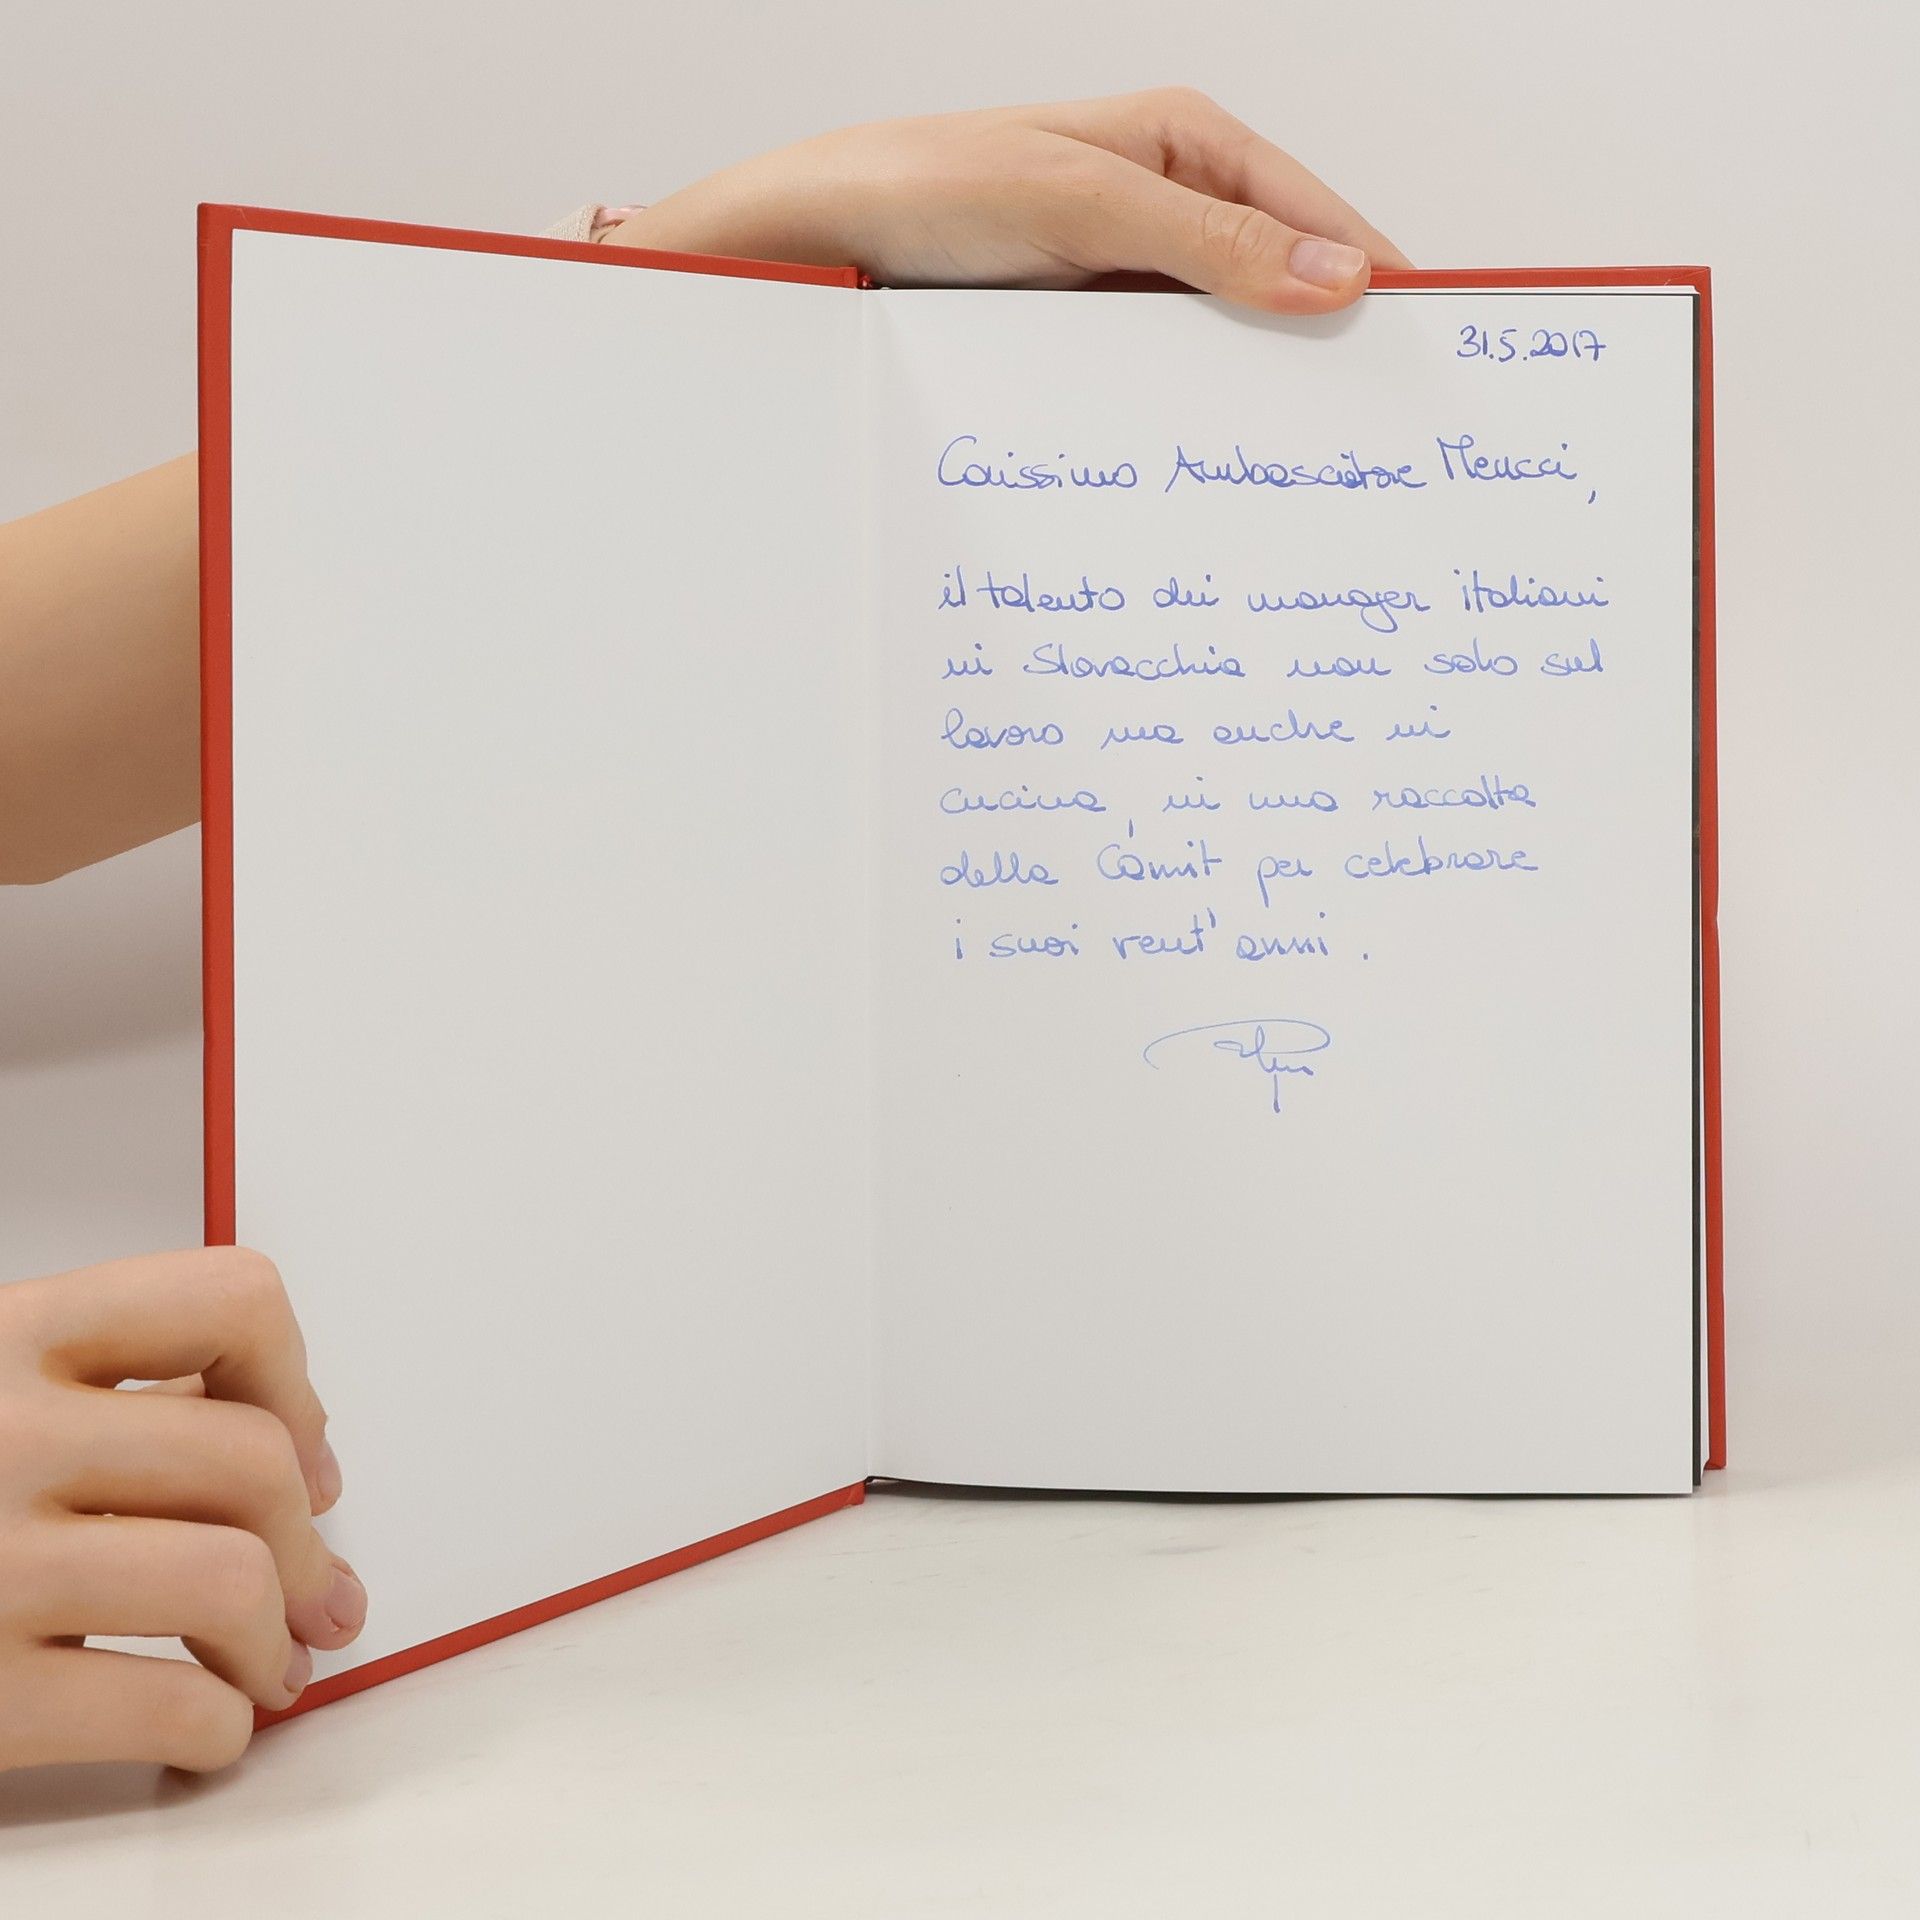 31.5.2017
Carissimo Ambasciatore Meucci,
il talento dei manager italiani
in Slovacchia non solo sul
lavoro ma anche in
cucina, in una raccolta
della Camit per celebrare
i suoi vent'anni.